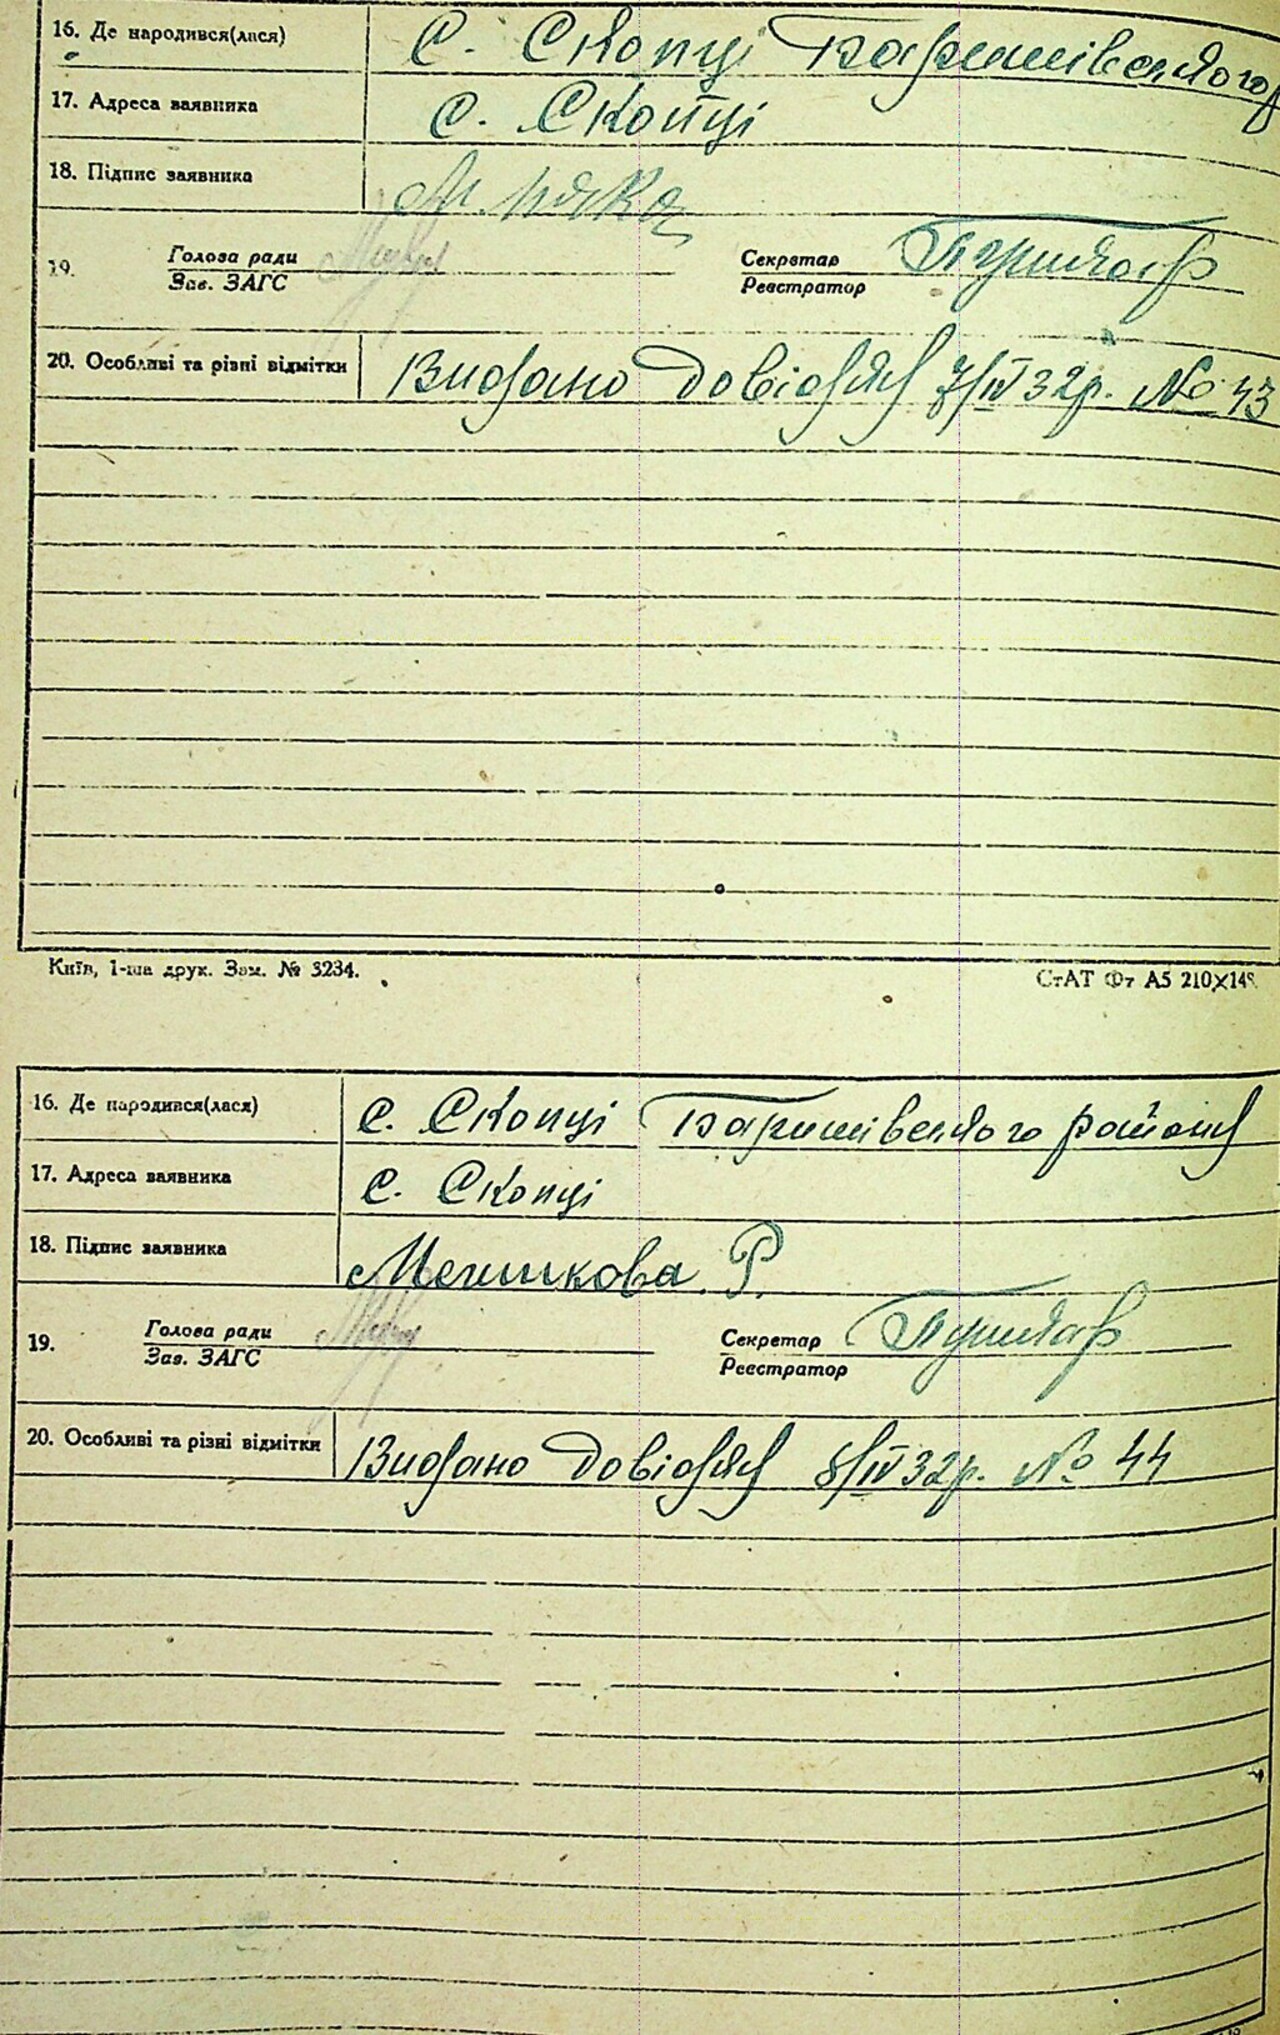 16. Де народився(лася) с. Скопці Баришівського р
17. Адреса заявника с. Скопці
18. Підпис заявника М.
19. Голова ради Секретар
Зав. ЗАГС Реєстратор
20. Особливі та різні відмітки Видано довідку 7/IV 32р. № 43
Київ, 1-ша друк. Зам. № 3234. СтАТ Фт А5 210×148
16. Де народився(лася) с. Скопці Баришівського району
17. Адреса заявника с. Скопці
18. Підпис заявника Меншикова Р.
19. Голова ради Секретар
Зав. ЗАГС Реєстратор
20. Особливі та різні відмітки Видано довідку 8/IV 32р. № 44